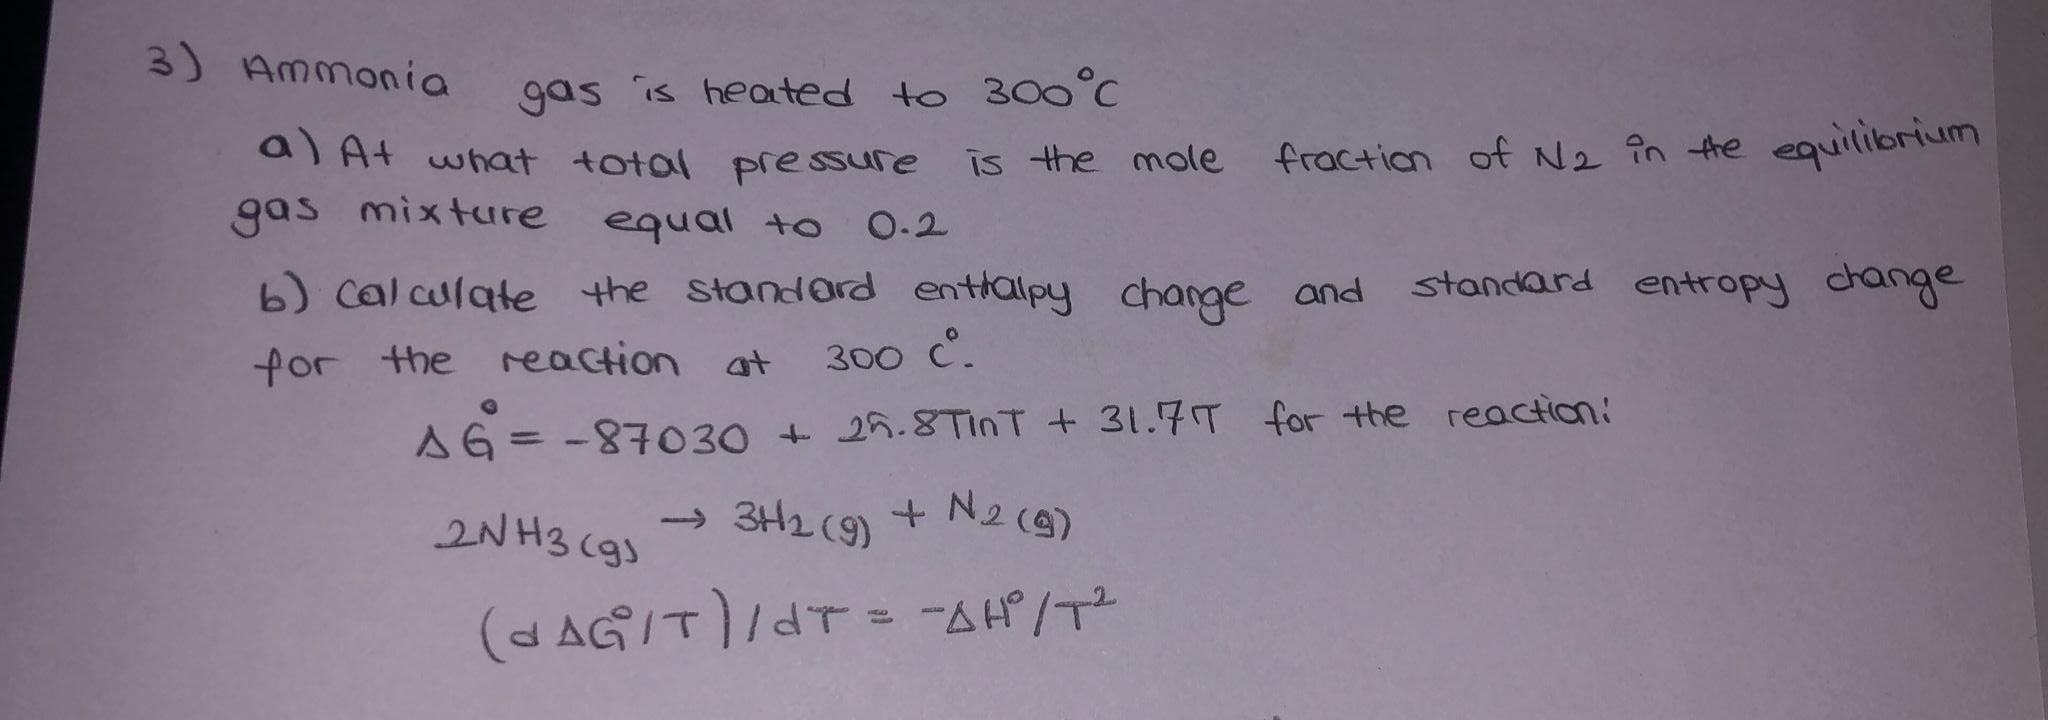 3) Ammonia gas is heated to 300°C
a) At what total pressure is the mole fraction of N2 in the equilibrium
gas mixture equal to 0.2
b) Calculate the standard enthalpy change and standard entropy change
for the reaction at 300 C°.
ΔG° = -87030 + 25.8TlnT + 31.7T for the reaction:
2NH3(g) → 3H2(g) + N2(g)
(dΔG°/T)/dT = -ΔH°/T²